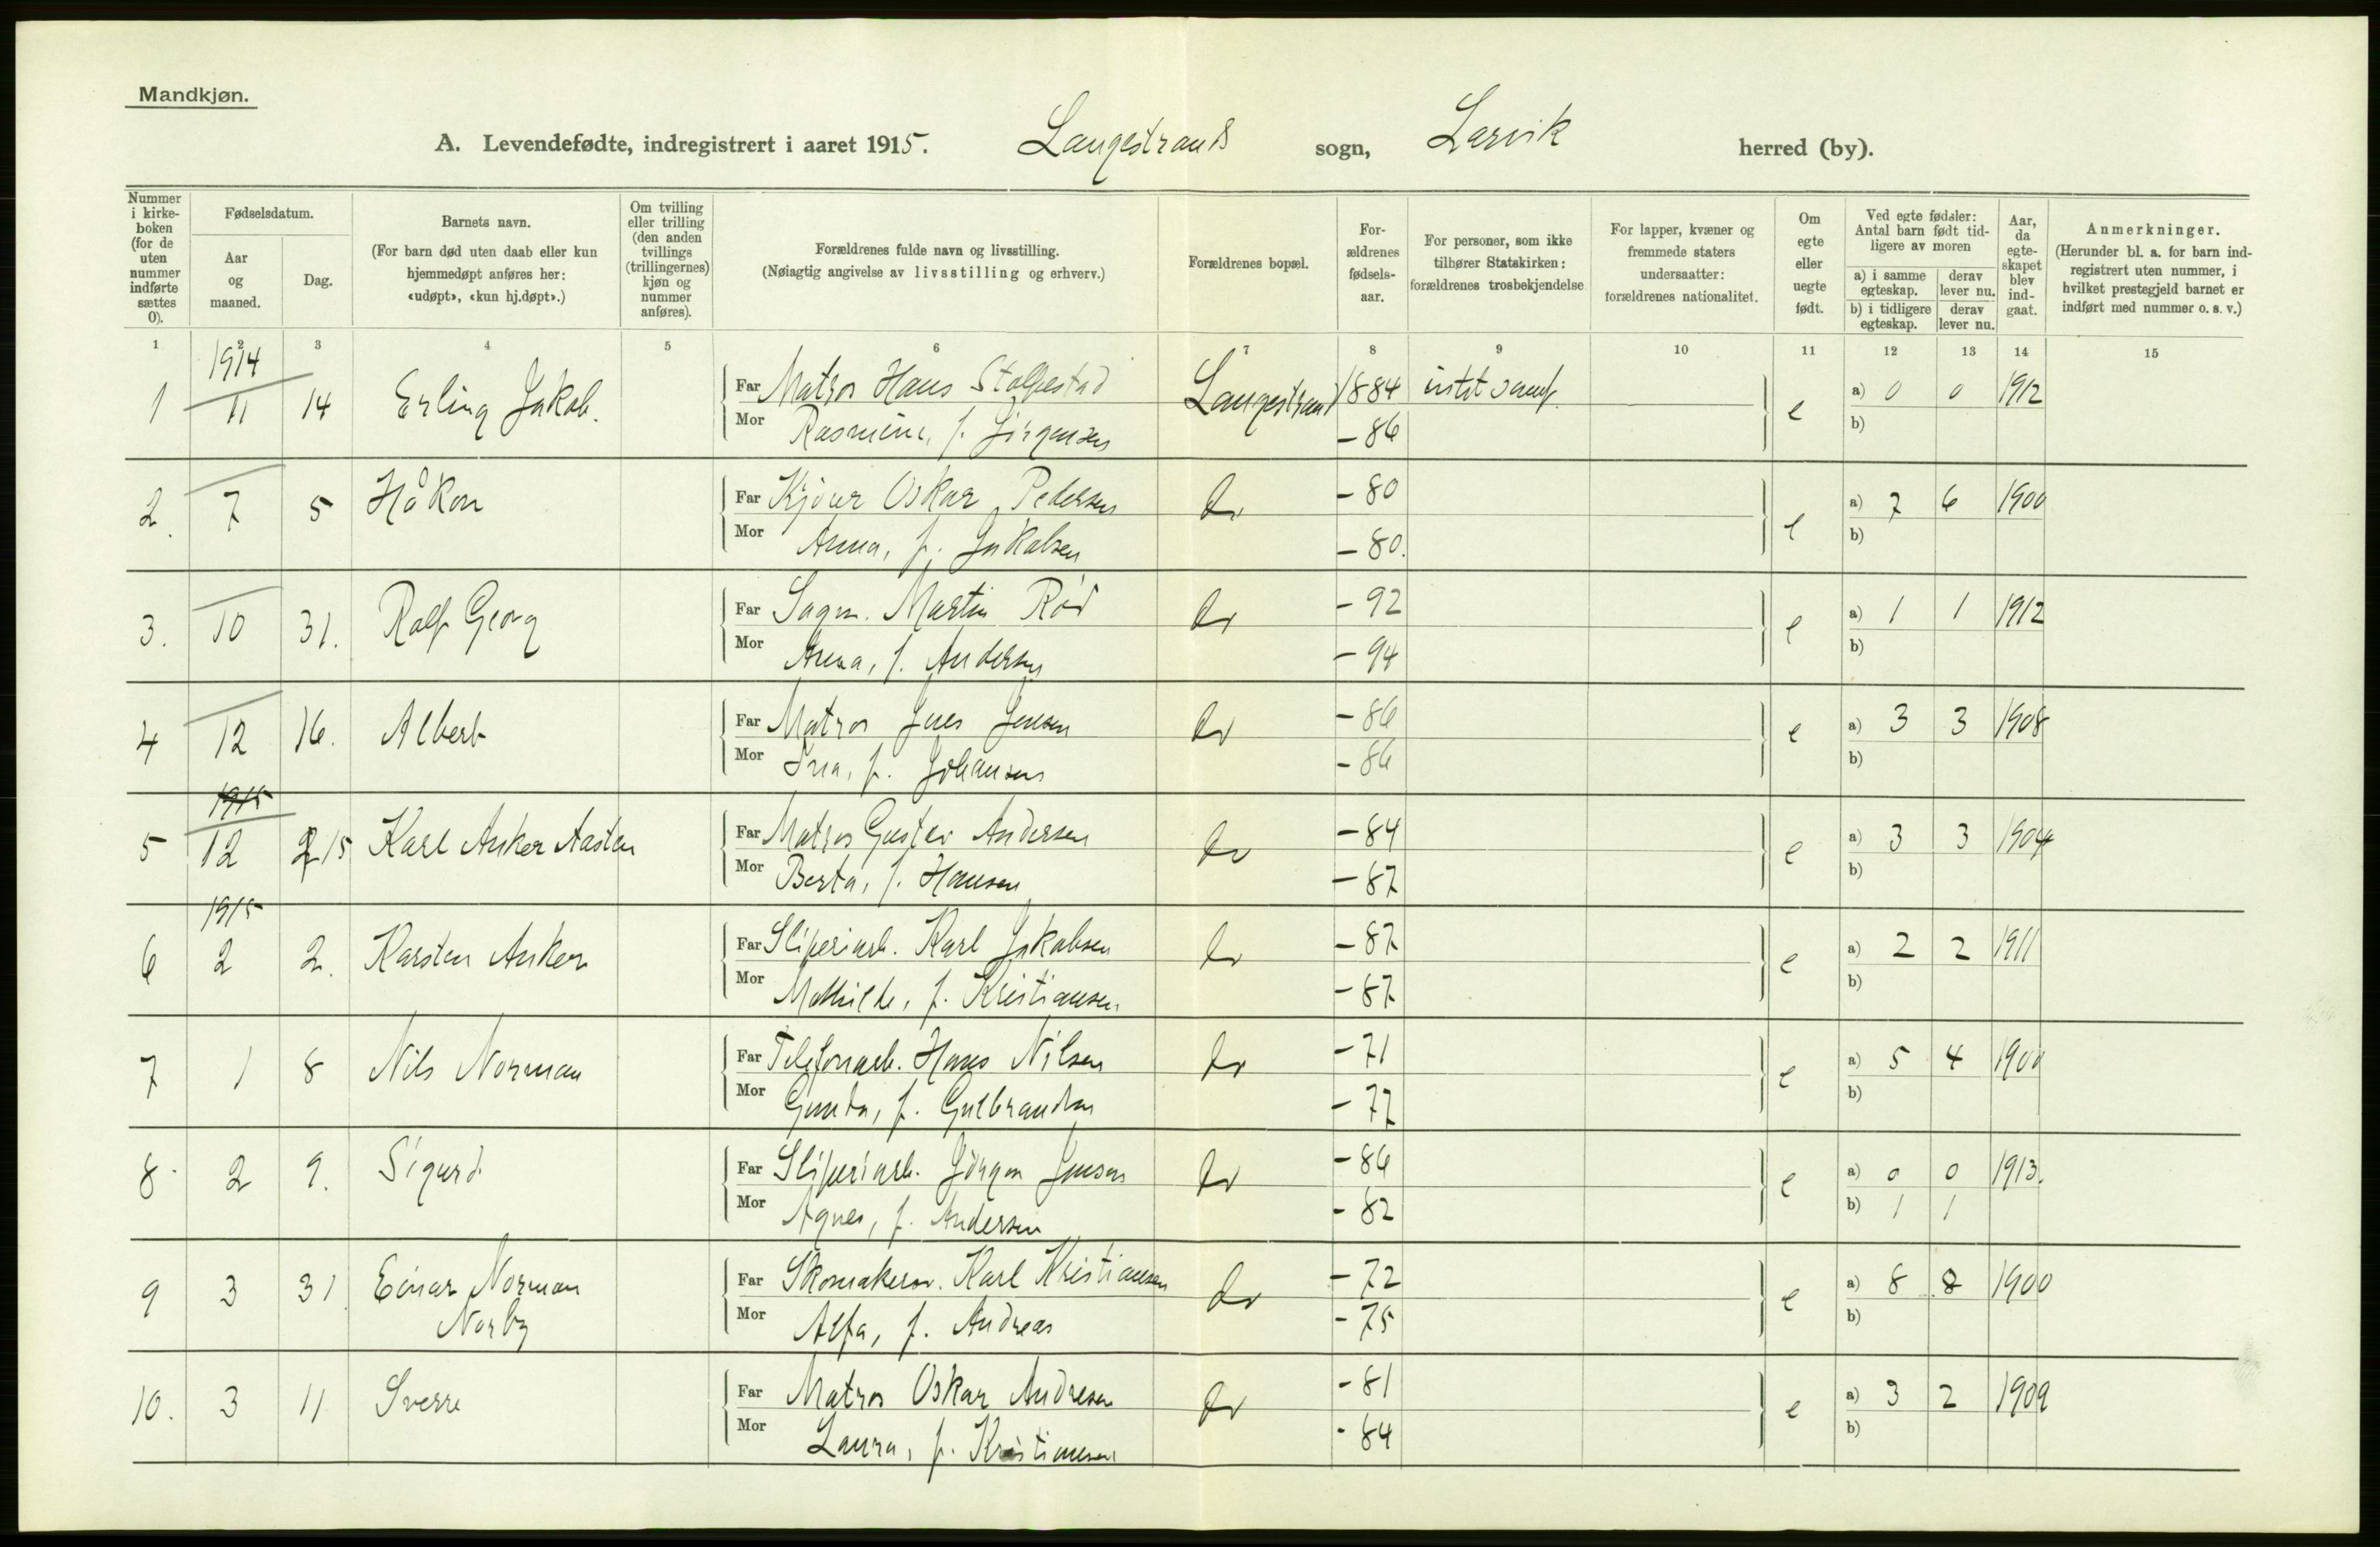 Mandkjøn.
A. Levendefødte, indregistrert i aaret 1915. Langestrands sogn, Larvik herred (by).
Nummer i kirkeboken (for de uten nummer indførte sættes 0).
Fødselsdatum.
Aar og maaned.
Dag.
Barnets navn.
(For barn død uten daab eller kun hjemmedøpt anføres her: «udøpt», «kun hj.døpt».)
Om tvilling eller trilling (den anden tvillings (trillingernes) kjøn og nummer anføres).
Forældrenes fulde navn og livsstilling.
(Nøiagtig angivelse av livsstilling og erhverv.)
Forældrenes bopæl.
For-ældrenes fødsels-aar.
For personer, som ikke tilhører Statskirken: forældrenes trosbekjendelse
For lapper, kvæner og fremmede staters undersaatter: forældrenes nationalitet.
Om egte eller uegte født.
Ved egte fødsler: Antal barn født tidligere av moren
a) i samme egteskap.
derav lever nu.
b) i tidligere egteskap.
derav lever nu.
Aar, da egte-skapet blev ind-gaat.
Anmerkninger.
(Herunder bl. a. for barn indregistrert uten nummer, i hvilket prestegjeld barnet er indført med nummer o. s. v.)
1 2 3 4 5 6 7 8 9 10 11 12 13 14 15
1914
1 11 14 Erling Jakob. Far Matros Hans Stolpestad Langestrand 1884 e a) 0 0 1912
Mor Rasmine, f. Jörgensen - 86 b)
2. 7 5 Håkon Far Kjører Oskar Pedersen do - 80 e a) 7 6 1900
Mor Anna, f. Jakobsen - 80. b)
3. 10 31. Ralf Georg Far Sagm. Martin Röd do - 92 e a) 1 1 1912
Mor Anna, f. Andersen - 94 b)
4 12 16. Albert Far Matros Jens Jensen do - 86 e a) 3 3 1908
Mor f. Johansen - 86 b)
1915
5 12 15 Karl Anker Aasten Far Matros Gustav Andersen do - 84 e a) 3 3 1904
Mor Berta, f. Hansen - 87 b)
1915
6 2 2. Karsten Anker Far Sliperiarb. Karl Jakobsen do - 87 e a) 2 2 1911
Mor Mathilde, f. Kristiansen - 87 b)
7 1 8 Nils Norman Far Telefonarb. Hans Nilsen do - 71 e a) 5 4 1900
Mor Gunda, f. Gulbrandsen - 77 b)
8. 2 9. Sigurd Far Sliperiarb. Jörgen Jensen do - 86 e a) 0 0 1913.
Mor Agnes, f. Andersen - 82 b) 1 1
9 3 31 Einar Norman Norby Far Skomakersv. Karl Kristiansen do - 72 e a) 8 8 1900
Mor Alfa, f. Andreas - 75 b)
10. 3 11 Sverre Far Matros Oskar Andresen do - 81 e a) 3 2 1909
Mor Laura, f. Kristiansen - 84 b)